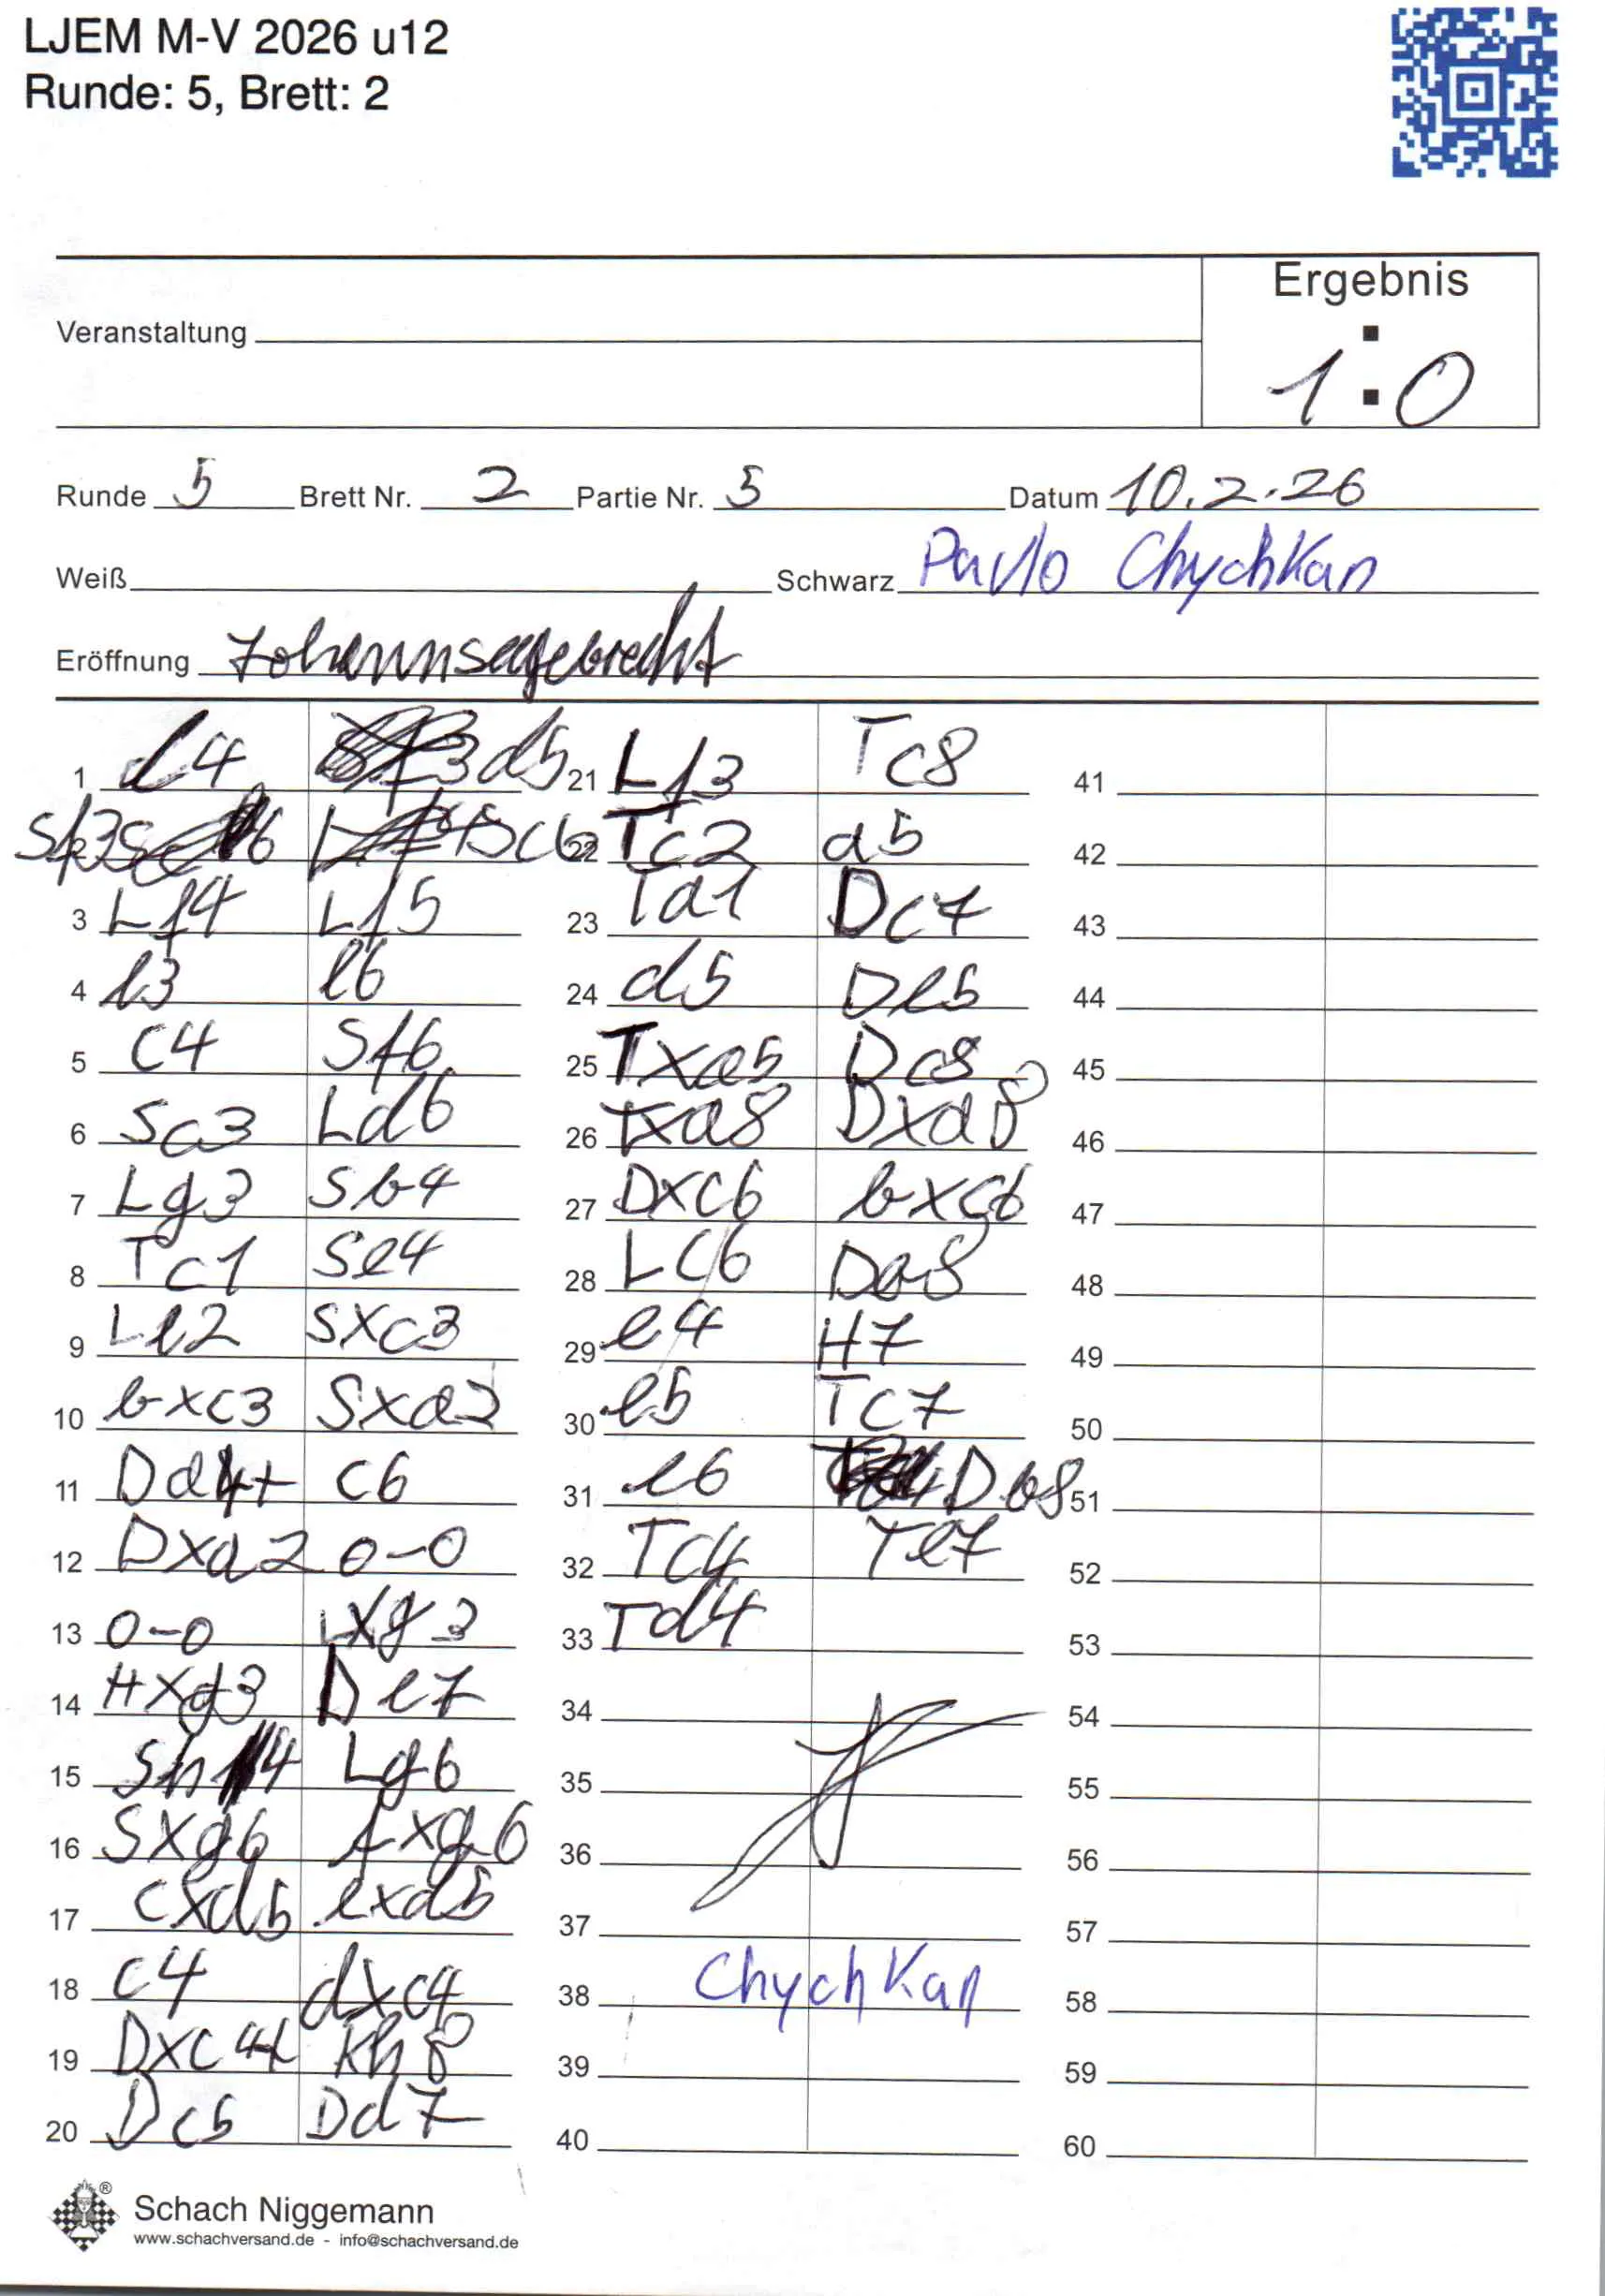 LJEM M-V 2026 u12
Runde: 5, Brett: 2
Ergebnis
1:0
Veranstaltung
Runde 5 Brett Nr. 2 Partie Nr. 5 Datum 10.2.26
Weiß Schwarz Pavlo Chychkan
Eröffnung
1 d4 d5
2 Sf3 Sc6
3 Lf4 Lf5
4 e3 e6
5 c4 Sf6
6 Sc3 Ld6
7 Lg3 Sb4
8 Tc1 Se4
9 Le2 Sxc3
10 bxc3 Sxa2
11 Da4+ c6
12 Dxa2 0-0
13 0-0 Lxg3
14 Hxg3 De7
15 Sh4 Lg6
16 Sxg6 fxg6
17 cxd5 exd5
18 c4 dxc4
19 Dxc4+ Kh8
20 Dc5 Dd7
21 Lf3 Tc8
22 Tc2 a5
23 Ta1 Dc7
24 d5 De5
25 Txa5 Dc8
26 Txa8 Dxa8
27 Dxc6 bxc6
28 Lc6 Da8
29 e4 H7
30 e5 Tc7
31 e6 Db8
32 Tc4 Te7
33 Td4
34
35
36
37
38 Chychkan
39
40
41
42
43
44
45
46
47
48
49
50
51
52
53
54
55
56
57
58
59
60
Schach Niggemann
www.schachversand.de - info@schachversand.de